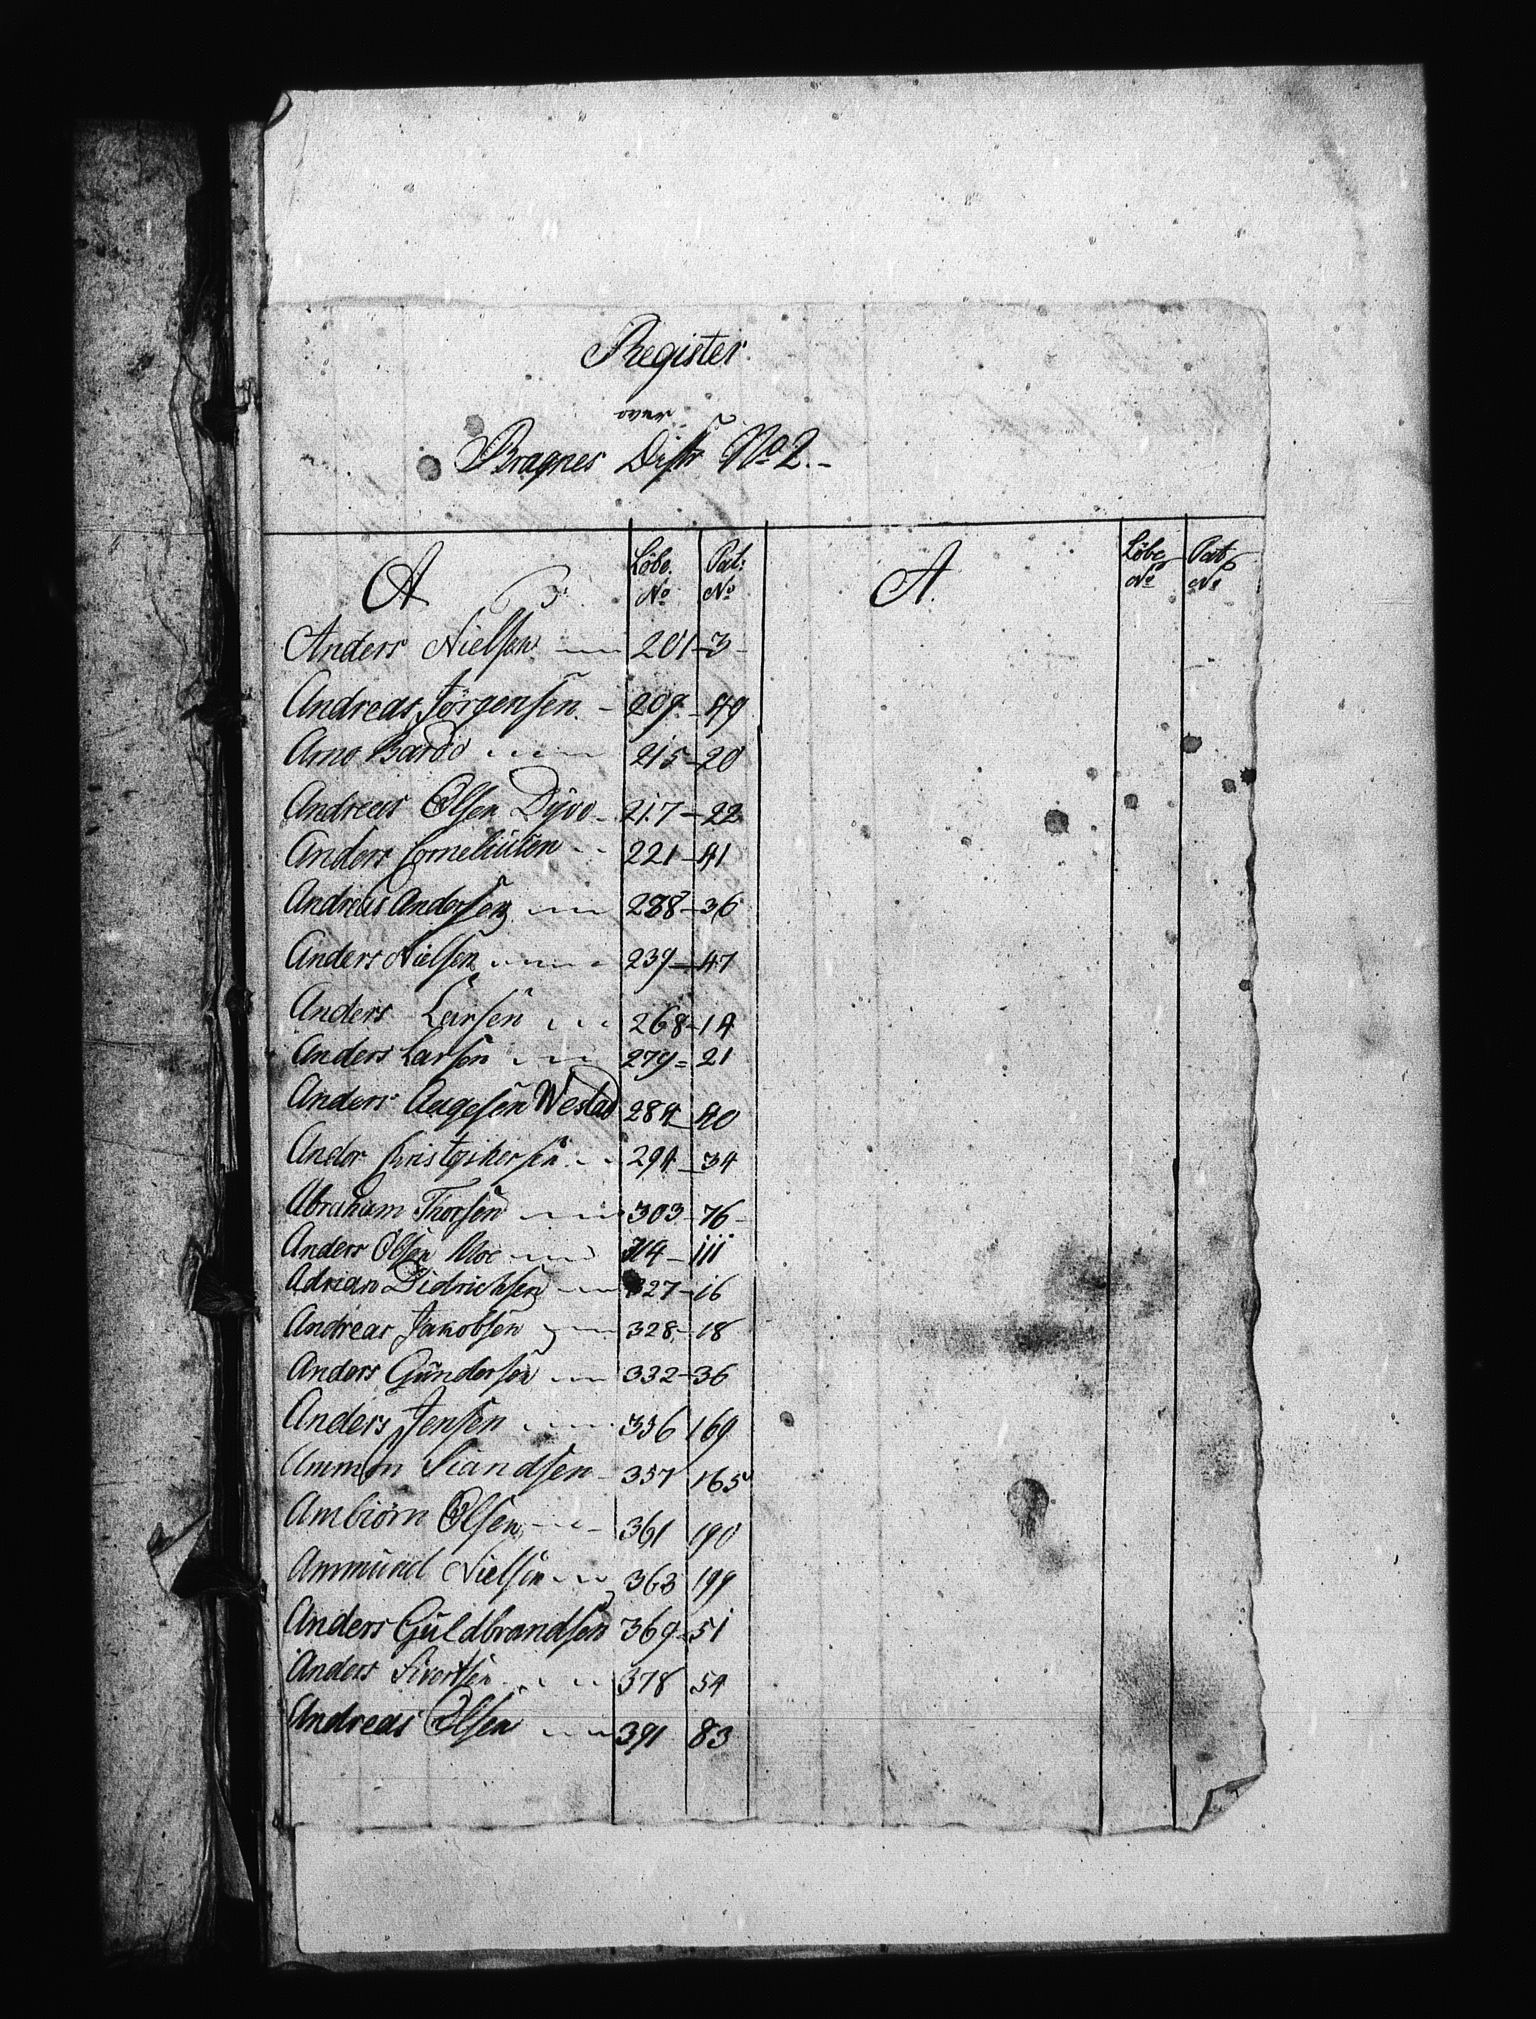 Register
over
Bragnes Distr No 2.-
A Löbe. No Pat: No A. Löbe No Pat No
Anders Nielsen 201 - 3 -
Andreas Jörgensen - 209 - 49
Arne Bardo 215 - 20
Andreas Olsen Dyvo - 217 - 22
Anders Corneliusen - - 221 - 41
Andreas Andersen 288 - 36
Anders Nielsen 239 - 47
Anders Larsen 268 - 14
Anders Larsen 279 = 21
Anders Aagesen Westad 284 - 40
Ander Christophersen 294 - 34
Abraham Thorsen 303 - 76 -
Anders Olsen Moe 314 - 111
Adrian Didrichsen 327 - 16
Andreas Jakobsen 328 - 18
Anders Gundersen 332 - 36
Anders Jensen 356 169
Ammon Siandsen - 357 165
Ambiörn Olsen 361 190
Ammund Nielsen 363 199
Anders Guldbrandsen 369 - 51
Anders Sivertsen 378 54
Andreas Olsen 391 83